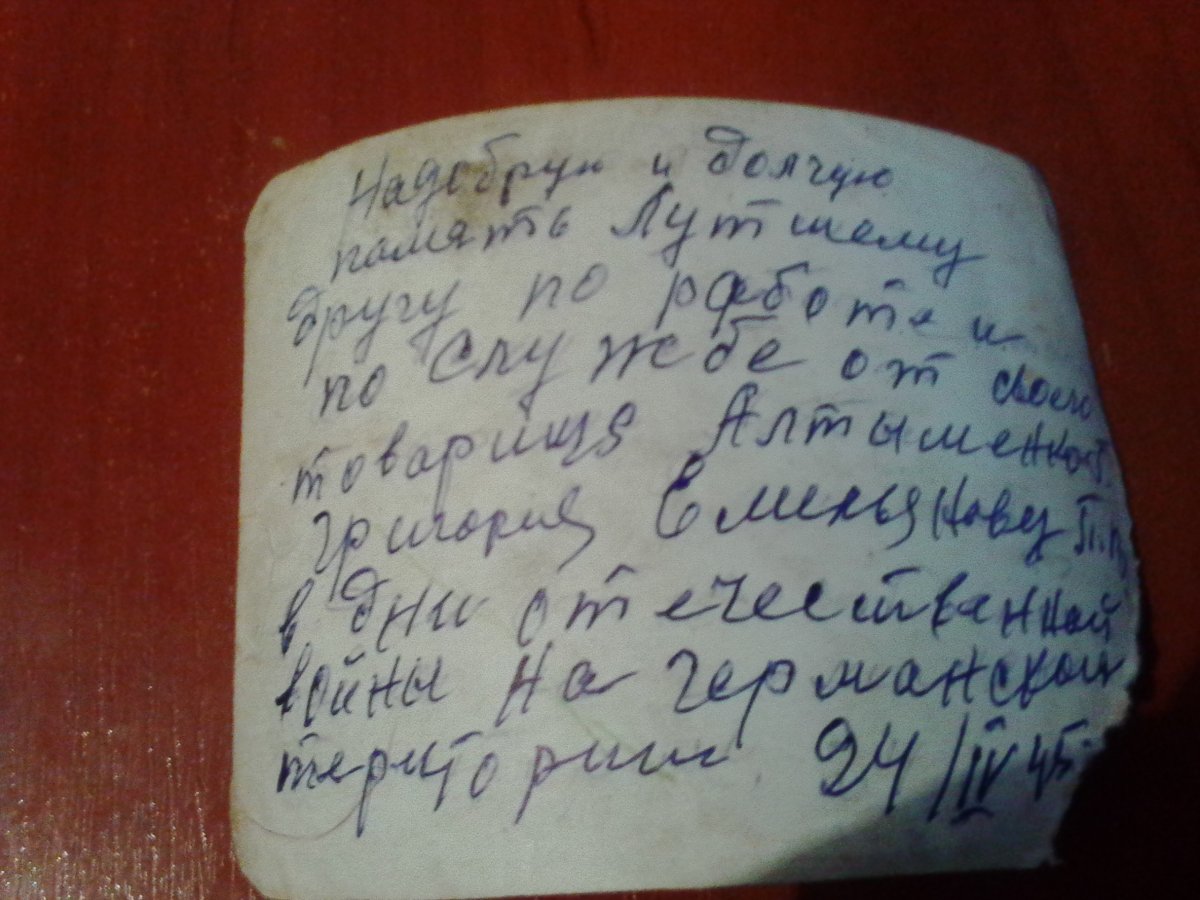 Надобрую и долгую
память Лутшему
другу по работе и
по службе от своего
товарища Алтыменко Г.
григория Емильянову П.П.
в дни отечественной
войны на германской
територии 24/IV 45